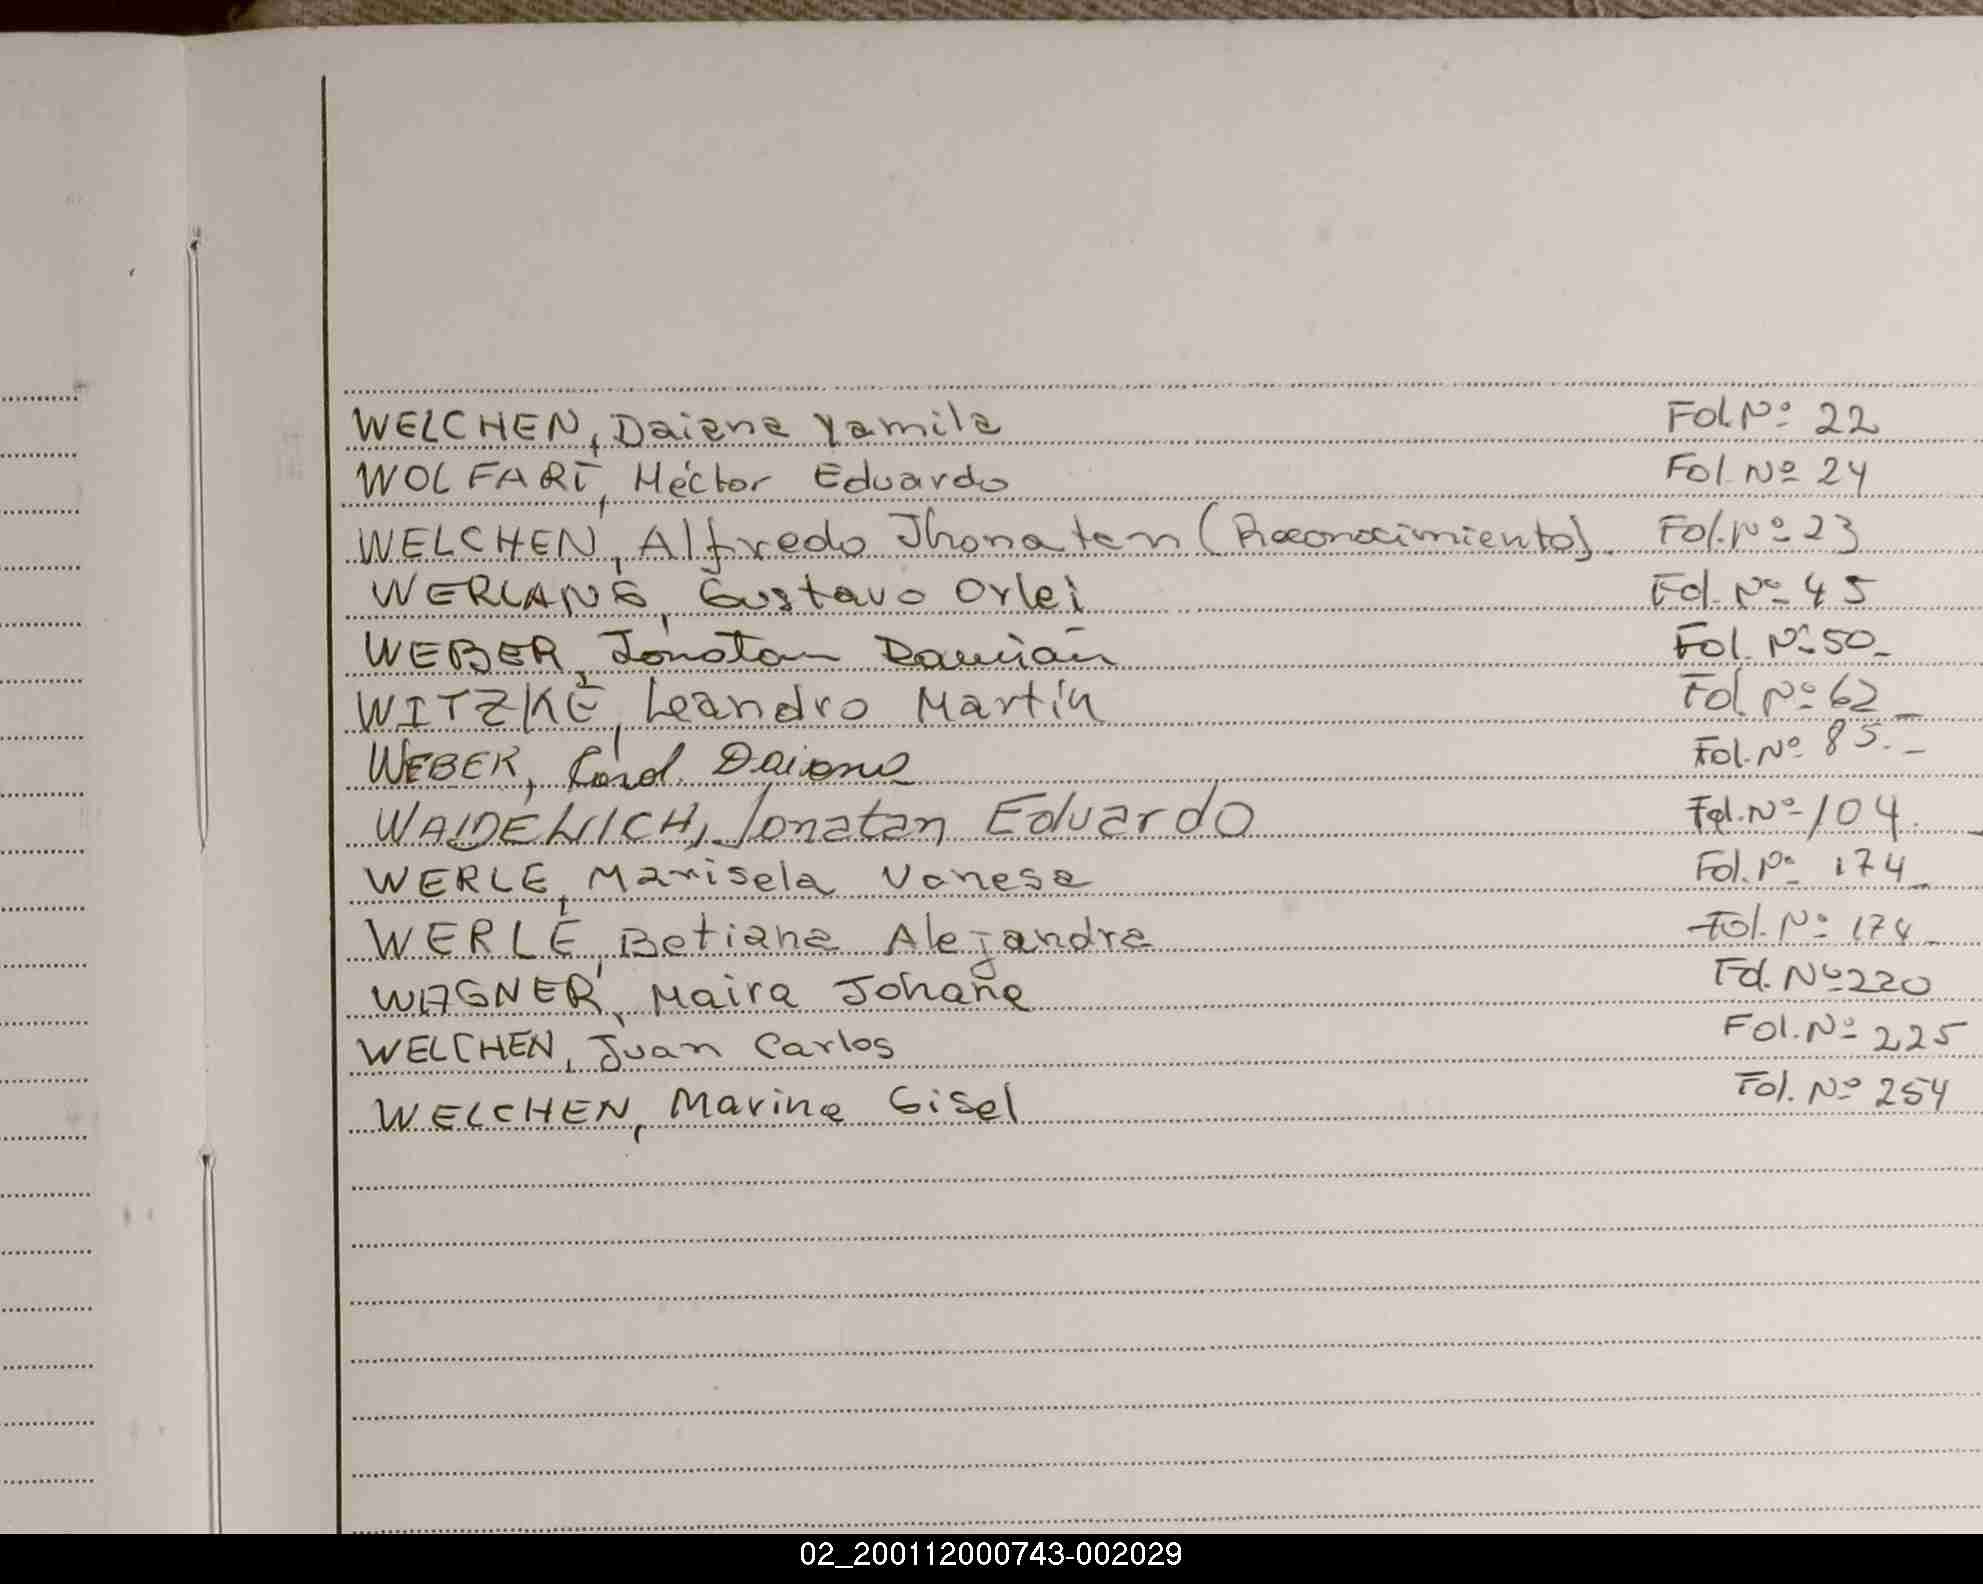 WELCHEN, Daiana Yamila Fol.Nº 22
WOLFART, Héctor Eduardo Fol. Nº 24
WELCHEN, Alfredo Jhonatan (Reconocimiento). Fol.Nº 23
WERLANG, Gustavo Orlei Fol. Nº 45
WEBER, Jonatan Damián Fol. Nº 50_
WITZKE, Leandro Martín Fol Nº 62_
WEBER, Daiana Fol.Nº 85._
WAIDELICH, Jonatan Eduardo Fol.Nº 104.
WERLE, Marisela Vanesa Fol.Nº 174_
WERLE, Betiana Alejandra Fol. Nº 174_
WAGNER, Maira Johana Fol. Nº 220
WELCHEN, Juan Carlos Fol.Nº 225
WELCHEN, Marina Gisel Fol. Nº 254
02_200112000743-002029